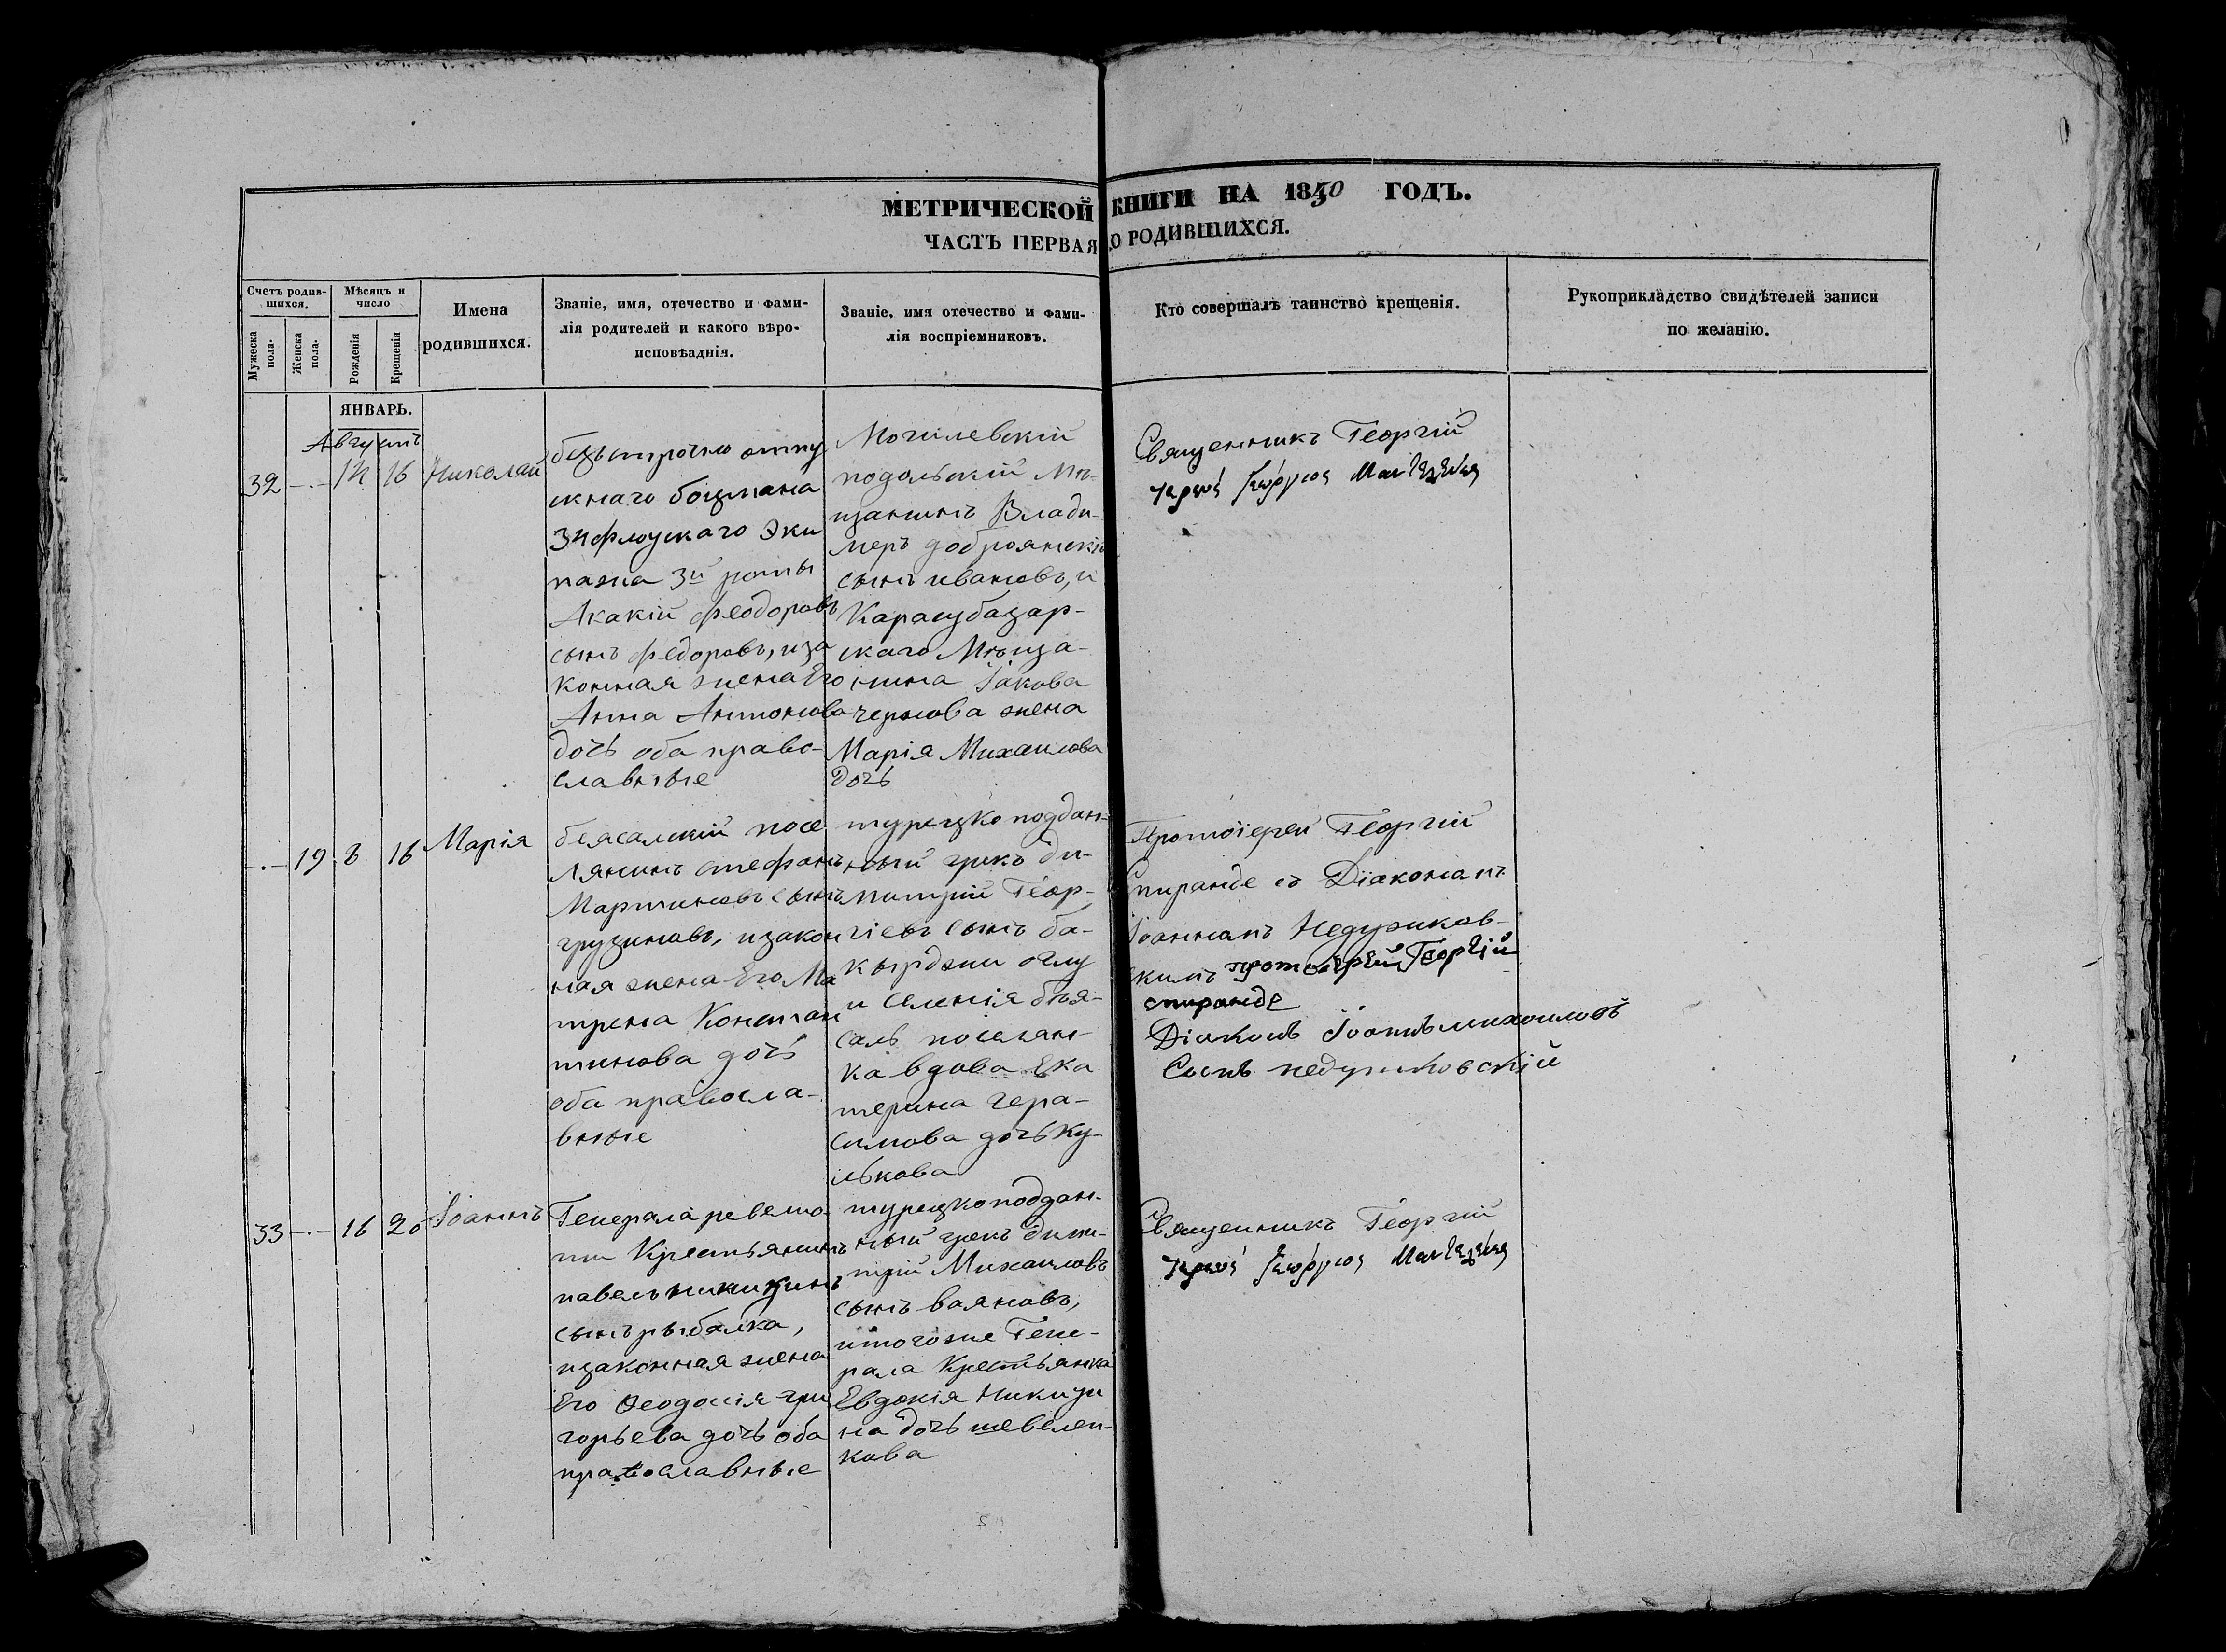 МЕТРИЧЕСКОЙ КНИГИ НА 1850 ГОДЪ.
ЧАСТЬ ПЕРВАЯ О РОДИВШИХСЯ.
Счетъ родив-
шихся.
Мужеска
пола.
Женска
пола.
Мѣсяцъ и
число
Рожденія
Крещенія
Имена
родившихся.
Званіе, имя, отечество и фами-
лія родителей и какого вѣро-
исповѣаднія.
Званіе, имя отечество и фами-
лія воспріемниковъ.
Кто совершалъ таинство крещенія.
Рукоприкладство свидѣтелей записи
по желанію.
ЯНВАРЬ.
Августъ
32 -.- 14 16 Николай
безъсрочно отпу
скнаго боцмана
флоцкаго Эки
пажа 3й роты
Акакій Феодоровъ
сынъ Федоровъ, иза
конная жена Его
Анна Антонова
дочь оба право-
славные
Могилевскій
подольскій Мѣ-
щанинъ Влади-
меръ доброянскій
сынъ ивановъ, и
Карасубазар-
скаго Мѣща-
нина Іакова
чернова жена
Марія Михаилова
дочь
Священникъ Георгій
-.- 19 8 16 Марія
беясалскій посе
лянинъ стефанъ
Мартиновъ сынъ
грузиновъ, изакон
ная жена Его Ма
трена Констан
тинова дочь
оба правосла-
вные
турецко поддан-
ный грекъ ди-
митрій Геор-
гіевъ сынъ ба-
кырджи оглу
и селенія бѣя-
саль поселян-
ка вдова Ека
терина гера-
симова дочь ку-
лькова
Протоіерей Георгій
Спиранде съ Діакономъ
Іоанномъ Недзиков-
скимъ протоіерей Георгій
спиранде
Діаконъ Іоаннъ михаиловъ
Сынъ
33 -.- 16 20 Іоаннъ
Генерала ревело
ти Крестьянинъ
павелъ никитинъ
сынъ рыбалка,
изаконная жена
Его Феодосія гри
горьева дочь оба
православные
турецкоподдан-
ный грекъ дими-
трій Михаиловъ
сынъ ваяновъ,
итогоже Гене-
рала Крестьянка
Евдокія Никити
на дочь шевелен-
кова
Священникъ Георгій